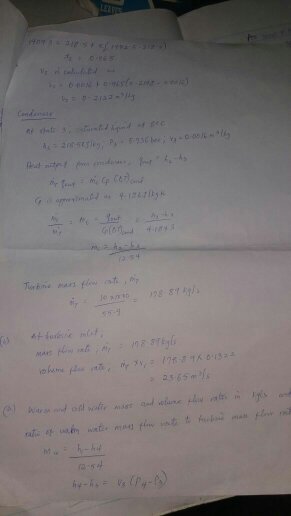 1407.3 = 218.5 + x₂(1442.5 - 218.5)
x₂ = 0.965
v₂ is calculated as
v₂ = 0.0016 + 0.965(0.2188 - 0.0016)
v₂ = 0.2122 m³/kg
Condenser
At state 3, saturated liquid at 8°C
h₃ = 218.5 kJ/kg, P₃ = 5.736 bar, v₃ = 0.0016 m³/kg
Heat output from condenser, qout = h₂-h₃
ṁT qout = ṁc Cp (ΔT)cond
Cp is approximated as 4.18 kJ/kgK
= mc =
4.18×3
mc = h₂-h₃
12.54
Turbine mass flow rate, ṁT
ṁT = = 178.89 kg/s
55.9
(c) At turbine inlet,
mass flow rate, ṁT = 178.89 kg/s
volume flow rate, ṁT × v₁ = 178.89 × 0.1322
= 23.65 m³/s
(d) Warm and cold water mass and volume flow rates in kg/s and
ratio of warm water mass flow rate to turbine mass flow rate
mw = h₁-h4
12.54
h4-h₃ = v₃ (P4-P₃)